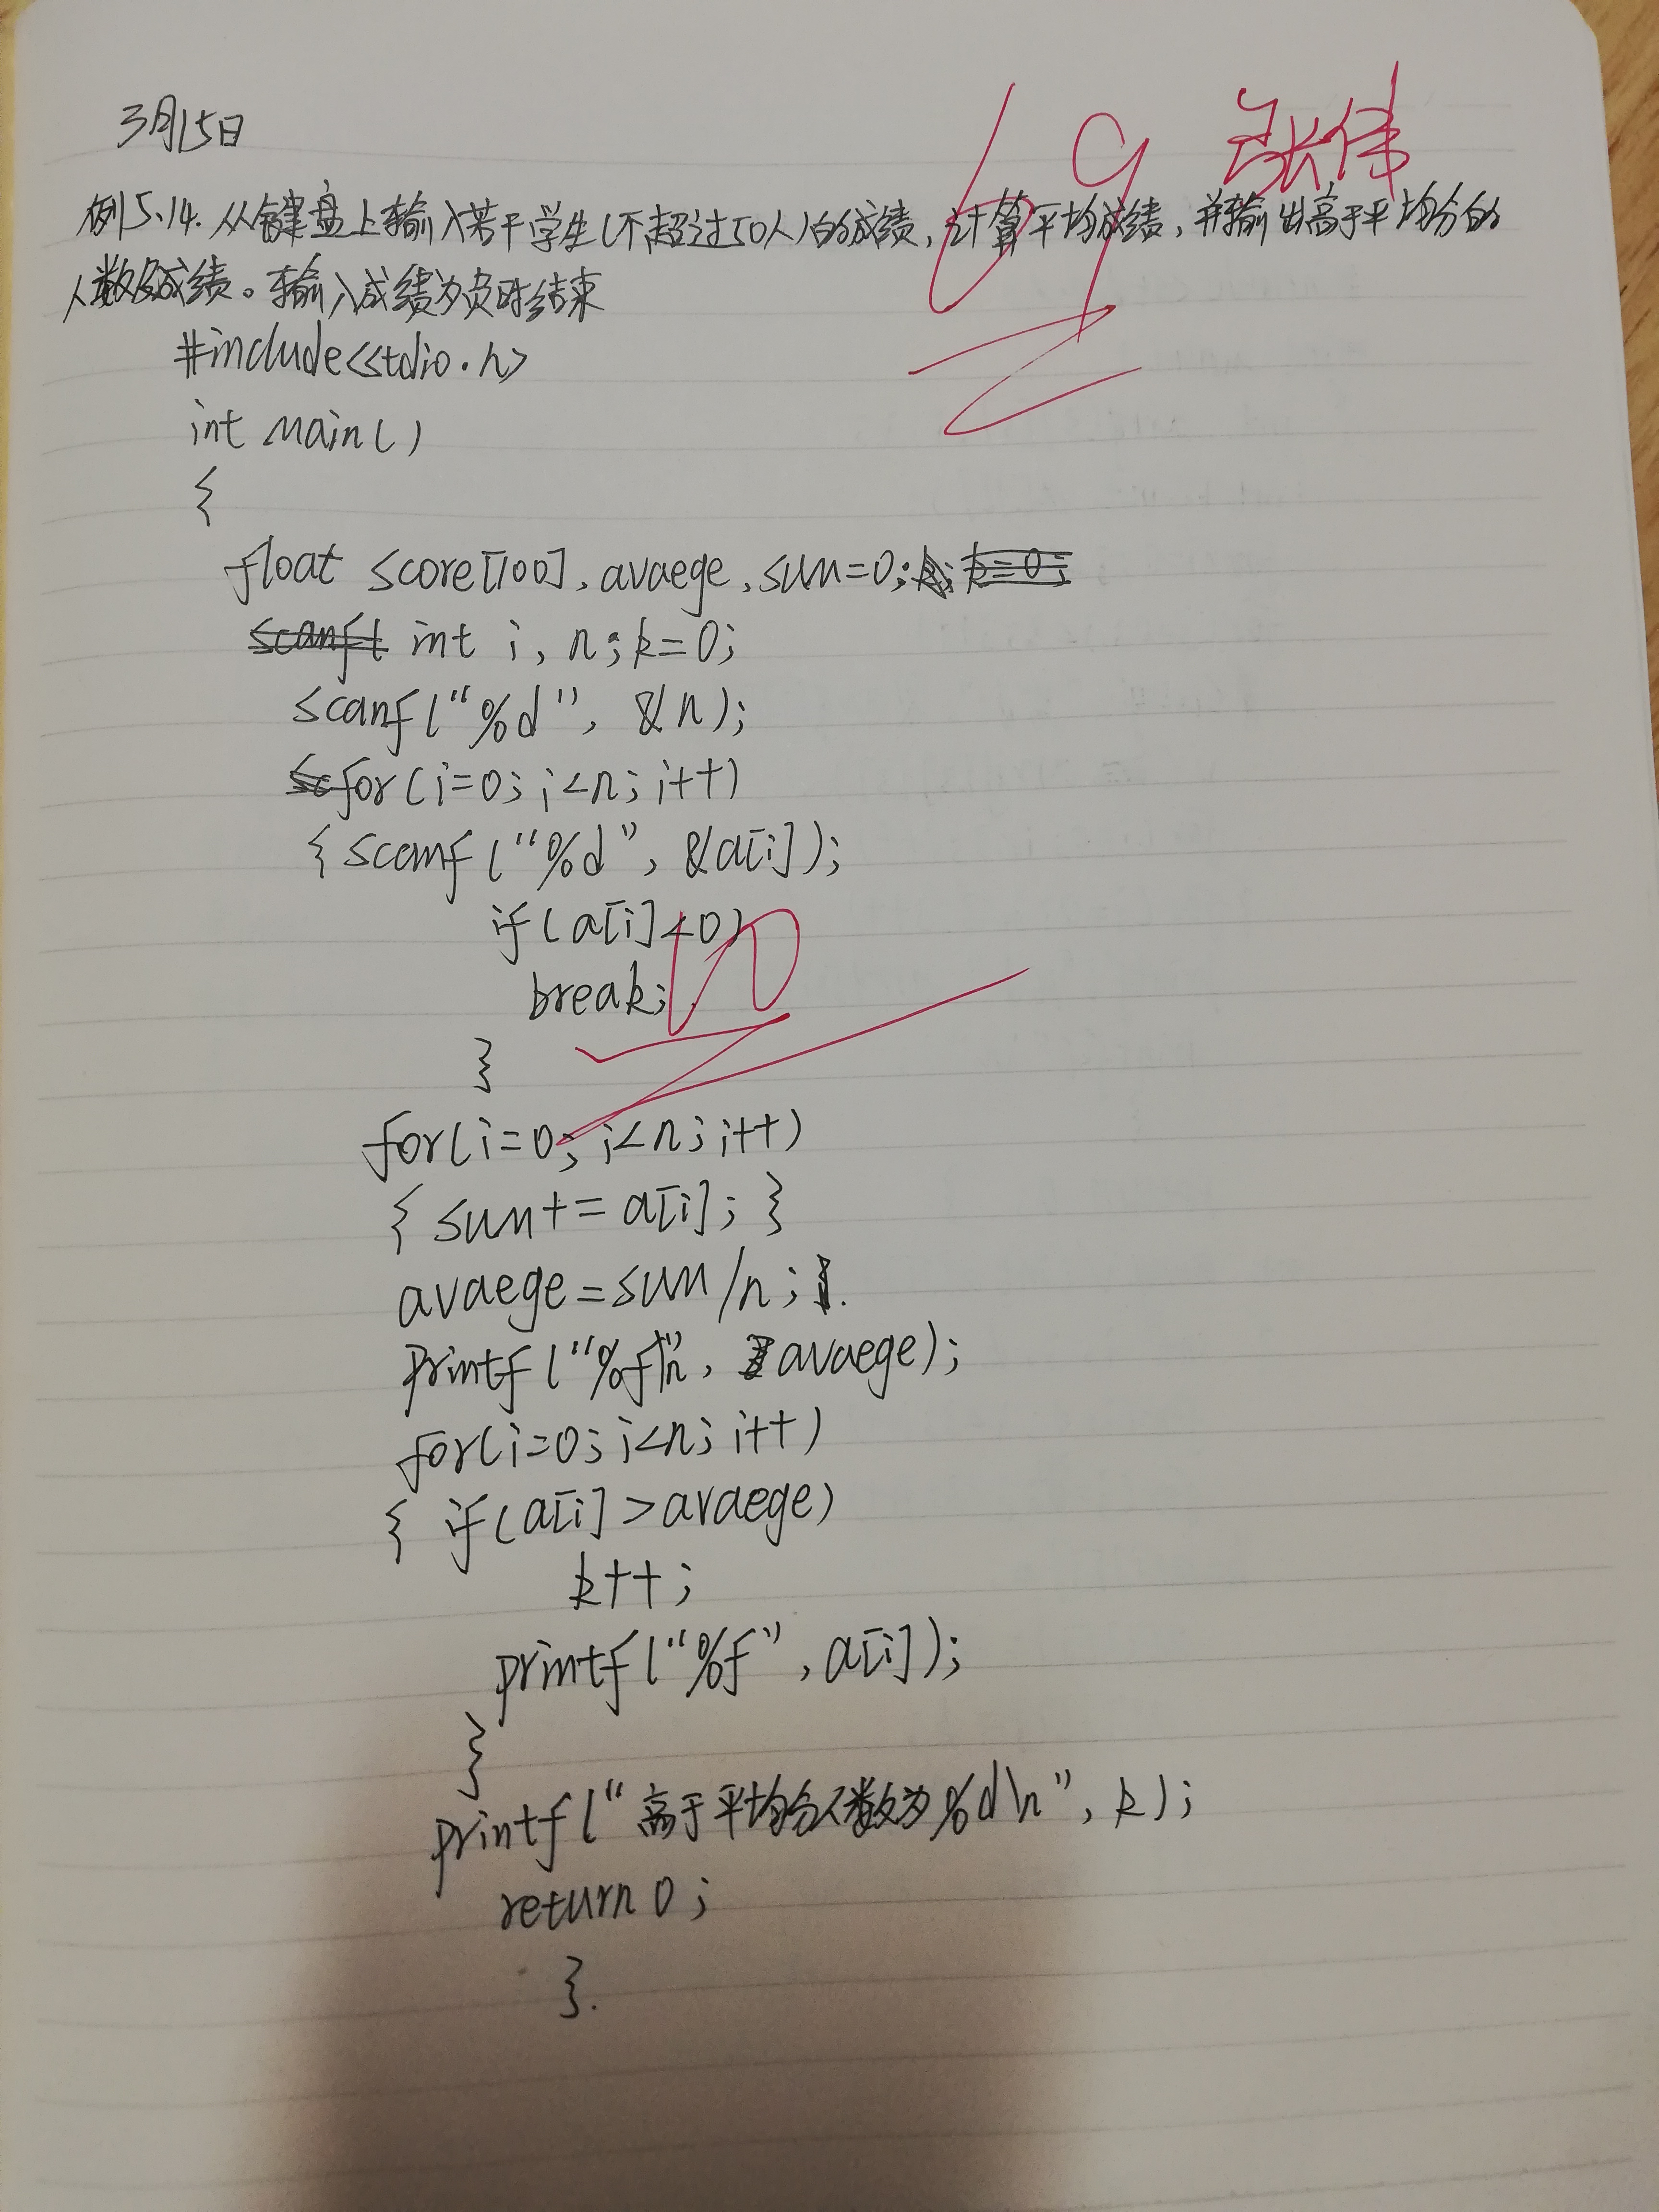 3月15日
69 张伟
例5.14.从键盘上输入若干学生(不超过50人)的成绩,计算平均成绩,并输出高于平均分的
人数及成绩。输入成绩为负时结束
#include<stdio.h>
int main()
{
float score[100], avaege, sum=0;
int i, n; k=0;
scanf("%d", &n);
for(i=0; i<n; i++)
{ scanf("%d", &a[i]);
if(a[i]<0)
break;
}
for(i=0; i<n; i++)
{ sum+=a[i]; }
avaege=sum/n;
printf("%f\n", avaege);
for(i=0; i<n; i++)
{ if(a[i]>avaege)
k++;
printf("%f", a[i]);
}
printf("高于平均分人数为%d\n", k);
return 0;
}.